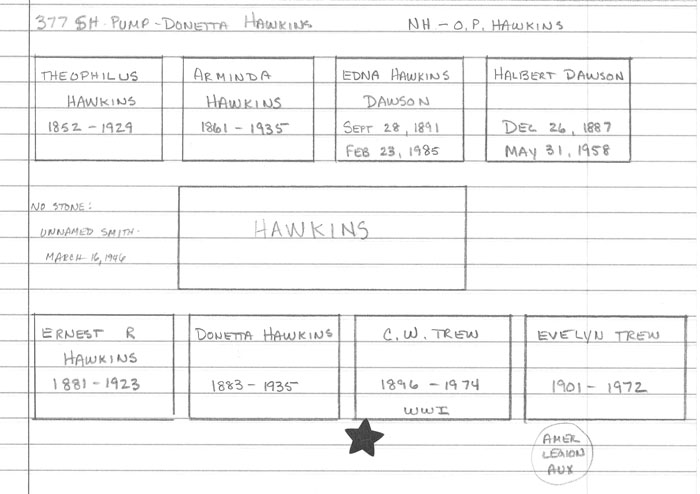 377 SH-PUMP-DONETTA HAWKINS NH-O.P. HAWKINS
THEOPHILUS
HAWKINS
1852-1929
ARMINDA
HAWKINS
1861-1935
EDNA HAWKINS
DAWSON
SEPT 28, 1891
FEB 23, 1985
HALBERT DAWSON
DEC 26, 1887
MAY 31, 1958
NO STONE:
UNNAMED SMITH-
MARCH 16, 1946
HAWKINS
ERNEST R
HAWKINS
1881-1923
DONETTA HAWKINS
1883-1935
C.W. TREW
1896-1974
WWI
EVELYN TREW
1901-1972
AMER
LEGION
AUX